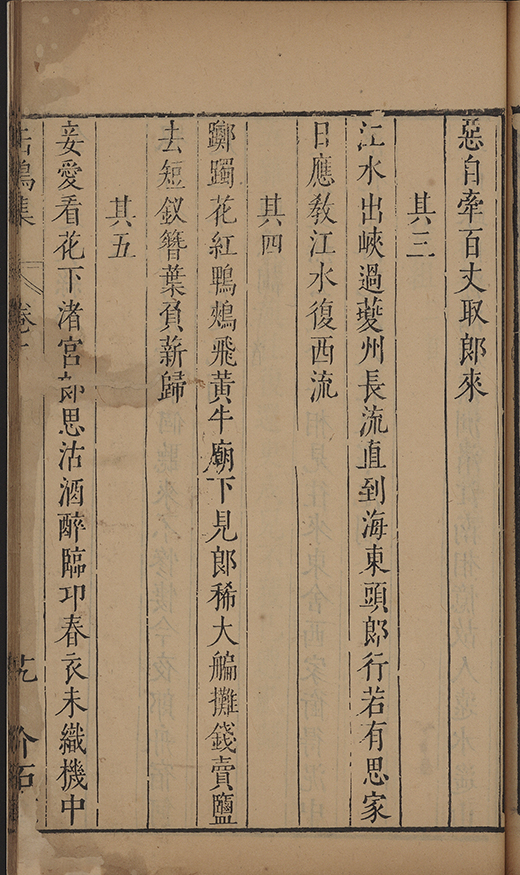 惡自牽百丈取郎來
其三
江水出峽過䕫州長流直到海東頭郎行若有思家
日應教江水復西流
其四
躑躅花紅鴨鵊飛黃牛廟下見郎稀大艑攤錢賣鹽
去短釵簪葉負薪歸
其五
妾愛看花下渚宮郎思沽酒醉臨卭春衣未織機中
集
卷